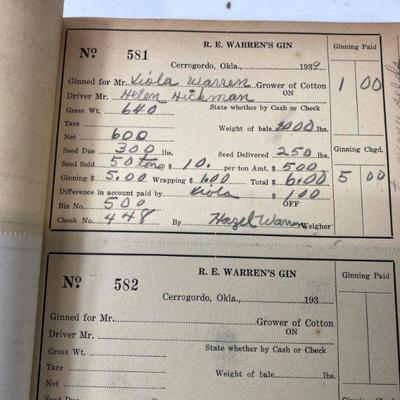 Nº 581 R. E. WARREN'S GIN Ginning Paid
Cerrogordo, Okla., 1939
Ginned for Mr. Viola Warren Grower of Cotton 1 00
Driver Mr. Helen Hickman ON
Gross Wt. 640 State whether by Cash or Check
Tare Weight of bale 1000 lbs.
Net 600 Ginning Chgd.
Seed Due 300 lbs. Seed Delivered 250 lbs.
Seed Sold 50 tons @ $ 10. per ton Amt. $ 500
Ginning $ 5.00 Wrapping $ 1.00 Total $ 6.00 5 00
Difference in account paid by Viola $ 1.00
Bin No. 500 OFF
Check No. 448 By Hazel Warren Weigher
Nº 582 R. E. WARREN'S GIN Ginning Paid
Cerrogordo, Okla., 193
Ginned for Mr. Grower of Cotton
Driver Mr. ON
Gross Wt. State whether by Cash or Check
Tare Weight of bale lbs.
Net Ginning Chgd.
Seed Due lbs. Seed Delivered lbs.